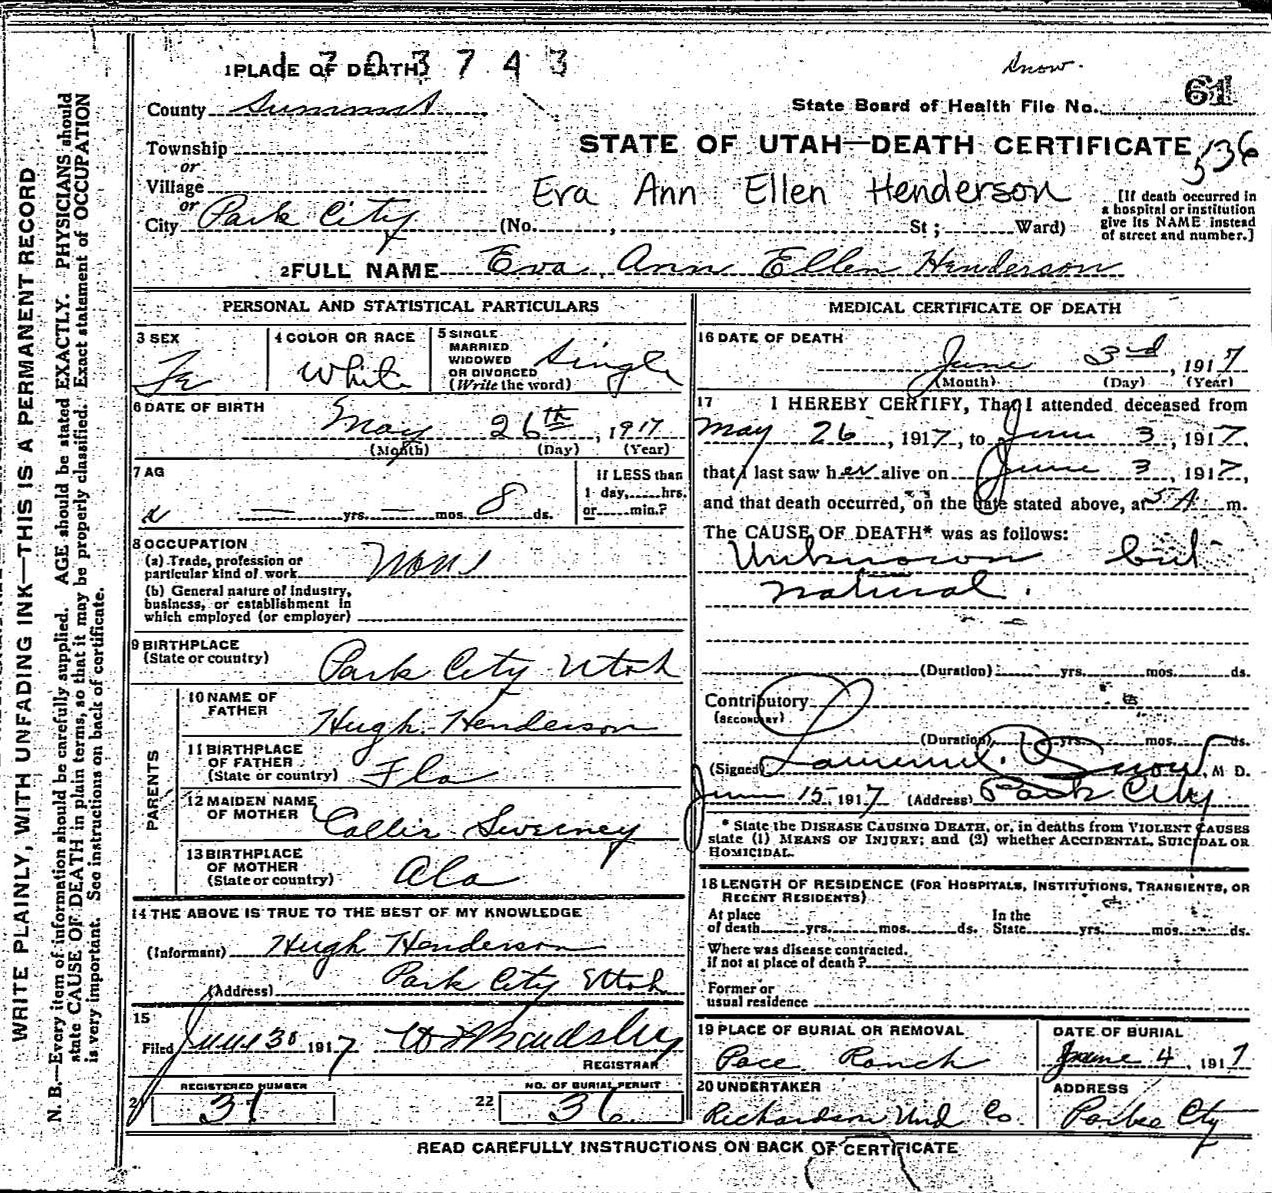 WRITE PLAINLY, WITH UNFADING INK—THIS IS A PERMANENT RECORD
N. B.—Every item of information should be carefully supplied. AGE should be stated EXACTLY. PHYSICIANS should
state CAUSE OF DEATH in plain terms, so that it may be properly classified. Exact statement of OCCUPATION
is very important. See instructions on back of certificate.
1 PLACE OF DEATH
1 7 0 3 7 4 3
Snow.
County Summit
State Board of Health File No. 61
STATE OF UTAH—DEATH CERTIFICATE
536
Township
or
Village
or
City Park City
Eva Ann Ellen Henderson
(No. , St ; Ward)
[If death occurred in
a hospital or institution
give its NAME instead
of street and number.]
2 FULL NAME Eva Ann Ellen Henderson
PERSONAL AND STATISTICAL PARTICULARS
3 SEX
Fe
4 COLOR OR RACE
White
5 SINGLE
MARRIED
WIDOWED
OR DIVORCED
(Write the word)
Single
6 DATE OF BIRTH
May 26th, 1917
(Month) (Day) (Year)
7 AG
— yrs. — mos. 8 ds.
If LESS than
1 day, hrs.
or min.?
8 OCCUPATION
(a) Trade, profession or
particular kind of work None
(b) General nature of Industry,
business, or establishment in
which employed (or employer)
9 BIRTHPLACE
(State or country) Park City Utah
PARENTS
10 NAME OF
FATHER Hugh Henderson
11 BIRTHPLACE
OF FATHER
(State or country) Fla
12 MAIDEN NAME
OF MOTHER Callie Sweeney
13 BIRTHPLACE
OF MOTHER
(State or country) Ala
14 THE ABOVE IS TRUE TO THE BEST OF MY KNOWLEDGE
(Informant) Hugh Henderson
(Address) Park City Utah
15
Filed June 30 1917
REGISTRAR
REGISTERED NUMBER
21 31
NO. OF BURIAL PERMIT
22 36
MEDICAL CERTIFICATE OF DEATH
16 DATE OF DEATH
June 3rd, 1917
(Month) (Day) (Year)
17 I HEREBY CERTIFY, That I attended deceased from
May 26, 1917, to June 3, 1917,
that I last saw her alive on June 3, 1917,
and that death occurred, on the date stated above, at 5 A. m.
The CAUSE OF DEATH* was as follows:
Unknown but
Natural.
(Duration) yrs. mos. ds.
Contributory
(SECONDARY)
(Duration) yrs. mos. ds.
(Signed) Snow, M D.
June 15, 1917 (Address) Park City
* State the DISEASE CAUSING DEATH, or, in deaths from VIOLENT CAUSES
state (1) MEANS OF INJURY; and (2) whether ACCIDENTAL, SUICIDAL OR
HOMICIDAL.
18 LENGTH OF RESIDENCE (FOR HOSPITALS, INSTITUTIONS, TRANSIENTS, OR
RECENT RESIDENTS)
At place
of death yrs. mos. ds.
In the
State yrs. mos. ds.
Where was disease contracted.
if not at place of death?
Former or
usual residence
19 PLACE OF BURIAL OR REMOVAL
Pace Ranch
DATE OF BURIAL
June 4, 1917
20 UNDERTAKER
Richardson Und Co.
ADDRESS
Park City
READ CAREFULLY INSTRUCTIONS ON BACK OF CERTIFICATE